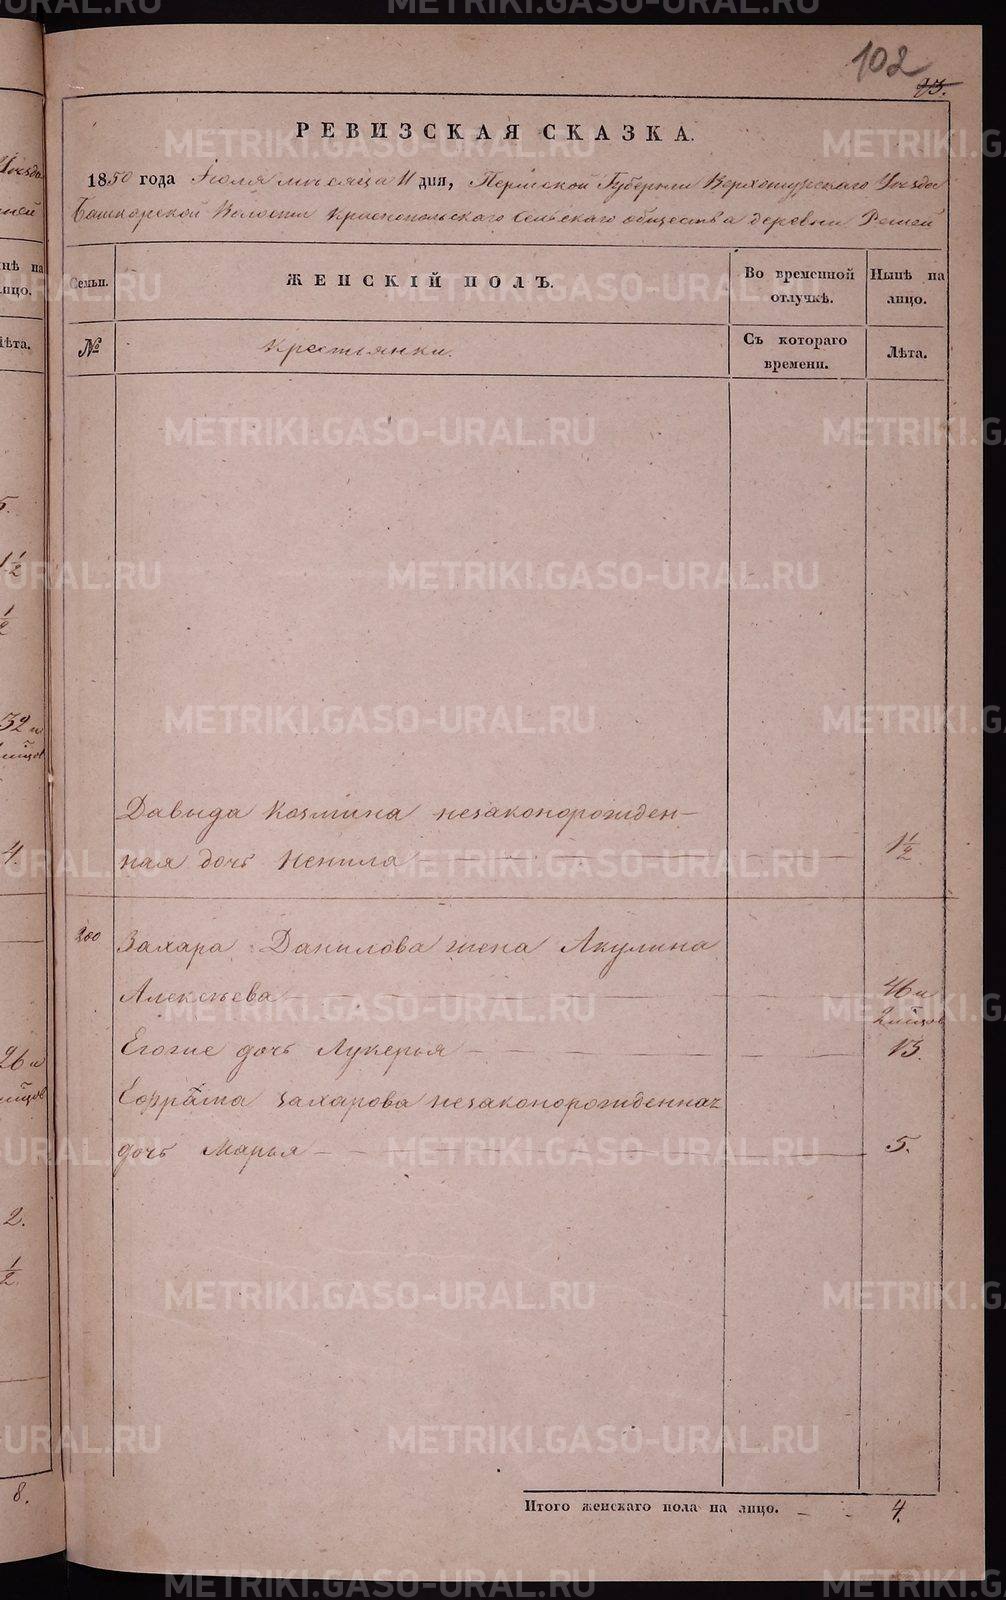 102
93.
РЕВИЗСКАЯ СКАЗКА.
1850 года Іюля мѣсяца 11 дня, Пермской Губерніи Верхотурскаго Уѣзда
Башкарской Волости Краснопольскаго Сельскаго общества деревни Решей
Семьи. ЖЕНСКІЙ ПОЛЪ. Во временной отлучкѣ. Нынѣ на лицо.
№ Крестьянки. Съ котораго времени. Лѣта.
Давыда Козмина незаконорожден-
ная дочь Ненила 1½
200 Захара Данилова жена Акулина
Алексѣева 46 и
2 мѣсцов
Егожe дочь Лукерья 13.
Захарова незаконорожденная
дочь Марья 5.
Итого женскаго пола на лицо. 4.
Уѣзда
нѣ на
лицо.
Лѣта.
5.
1½
½
32 и
мѣсцов
4.
26 и
мѣсцов
2.
½
8.
METRIKI.GASO-URAL.RU